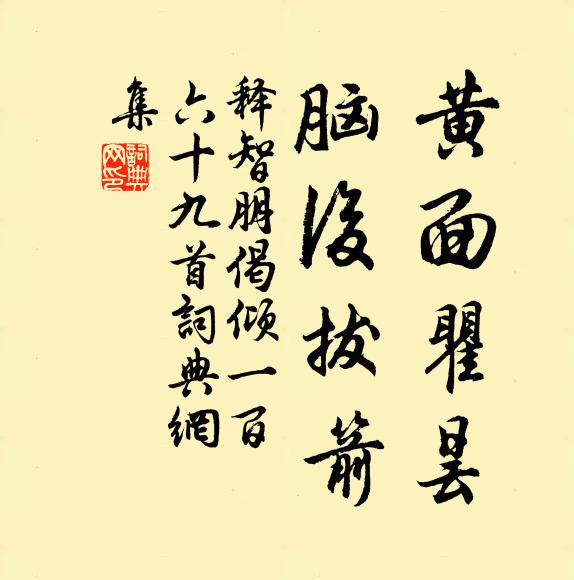 黄面瞿昙
脑後拔箭
释智朋偈倾一百
六十九首詞典網
集
詞典網印